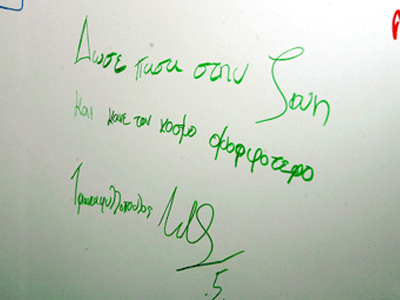 Δωσε πασα στην ζωη
και κανε τον κοσμο ομορφοτερο
Τριανταφυλλοπουλος
.5